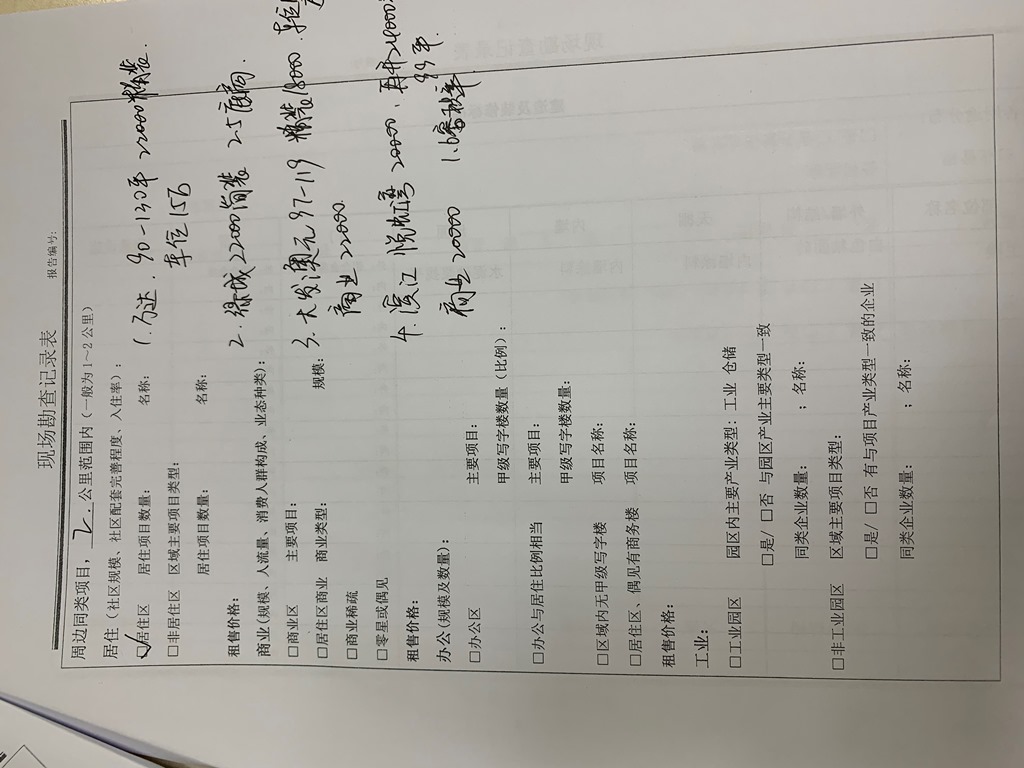 现场勘查记录表
报告编号:
周边同类项目，2.公里范围内（一般为1～2公里）
居住（社区规模、社区配套完善程度、入住率）：
☑居住区 居住项目数量： 名称：
1.万达. 90-130平 22000精装.
□非居住区 区域主要项目类型：
车位15万
居住项目数量： 名称：
租售价格：
2.绿城22000简装 2.5
商业(规模、人流量、消费人群构成、业态种类)：
□商业区 主要项目：
3.大发澳元97-119 精装18000.
□居住区商业 商业类型： 规模：
商业22000.
□商业稀疏
□零星或偶见
4.滨江 悦 湾 20000.
租售价格：
99年.
办公(规模及数量)：
商业20000 1.6容积率
□办公区 主要项目：
甲级写字楼数量（比例）：
□办公与居住比例相当 主要项目：
甲级写字楼数量：
□区域内无甲级写字楼 项目名称：
□居住区、偶见有商务楼 项目名称：
租售价格：
工业：
□工业园区 园区内主要产业类型：工业 仓储
□是/□否 与园区产业主要类型一致
同类企业数量： ；名称：
□非工业园区 区域主要项目类型：
□是/□否 有与项目产业类型一致的企业
同类企业数量： ；名称：